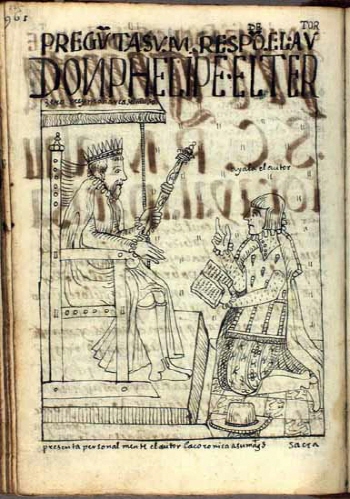 961
DE TOR
PREGVTASV.M.RESPŌDE.EL.AV
DON PHELIPE.EL TER
ayala el autor
presenta personalmente el autor la coronica a su mag.d
sacra